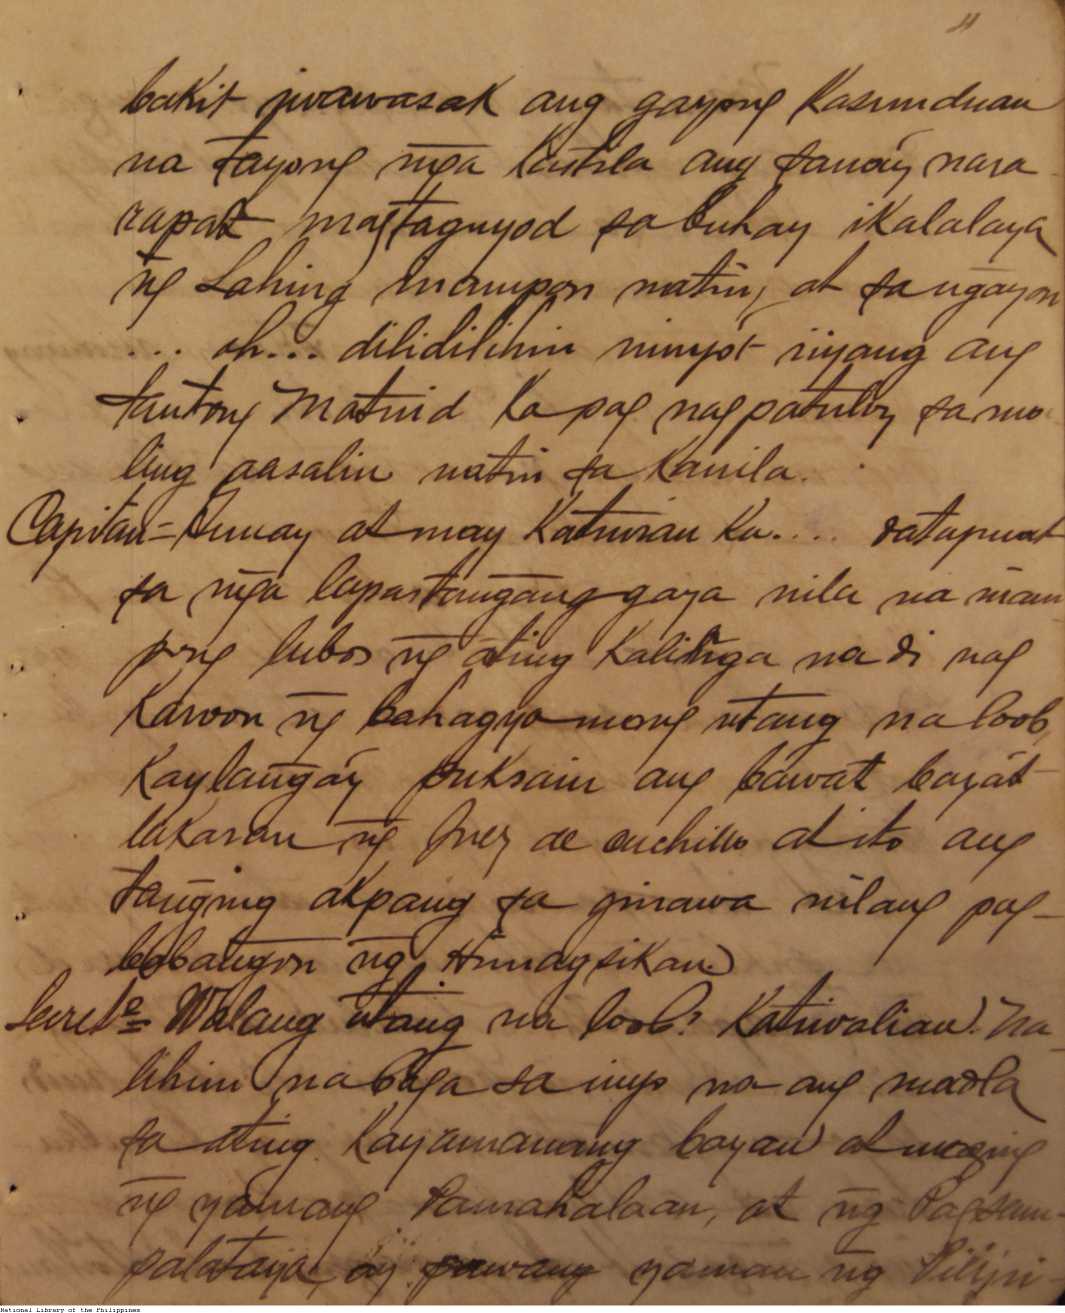 11
bakit iwawasak ang gayong Kasunduan
na tayong mga Kastila ang tanáy nara
rapat magtaguyod sa buhay ikalalaya
ng Lahing inampon natin, at sa ngayon
... oh... dilidilihin ninyo't iyang ang
tantong Matuid Kapag nagpatuloy sa mu
ling aasalin natin sa Kanila.
Capitan = Tunay at may Katuiran Ka.... datapuat
sa mga lapastangang gaya nila na inam
pong lubos ng ating Kalinga na di nag
Karoon ng bahagya mang utang na loob,
Kaylangáy puksain ang bawat bayát
lakaran ng Juez de cuchillo at ito ang
tanging akpang sa ginawa nilang pag-
babangon ng Himagsikan.
Secreto = Walang utang na loob? Katiwalian! Na
lihim na baga sa inyo na ang madla
sa ating Kayamanang bayan at maging
ng yamang Pamahalaan, at ng Pagsam-
palataya, ay pawang yaman ng Pilipi-
National Library of the Philippines